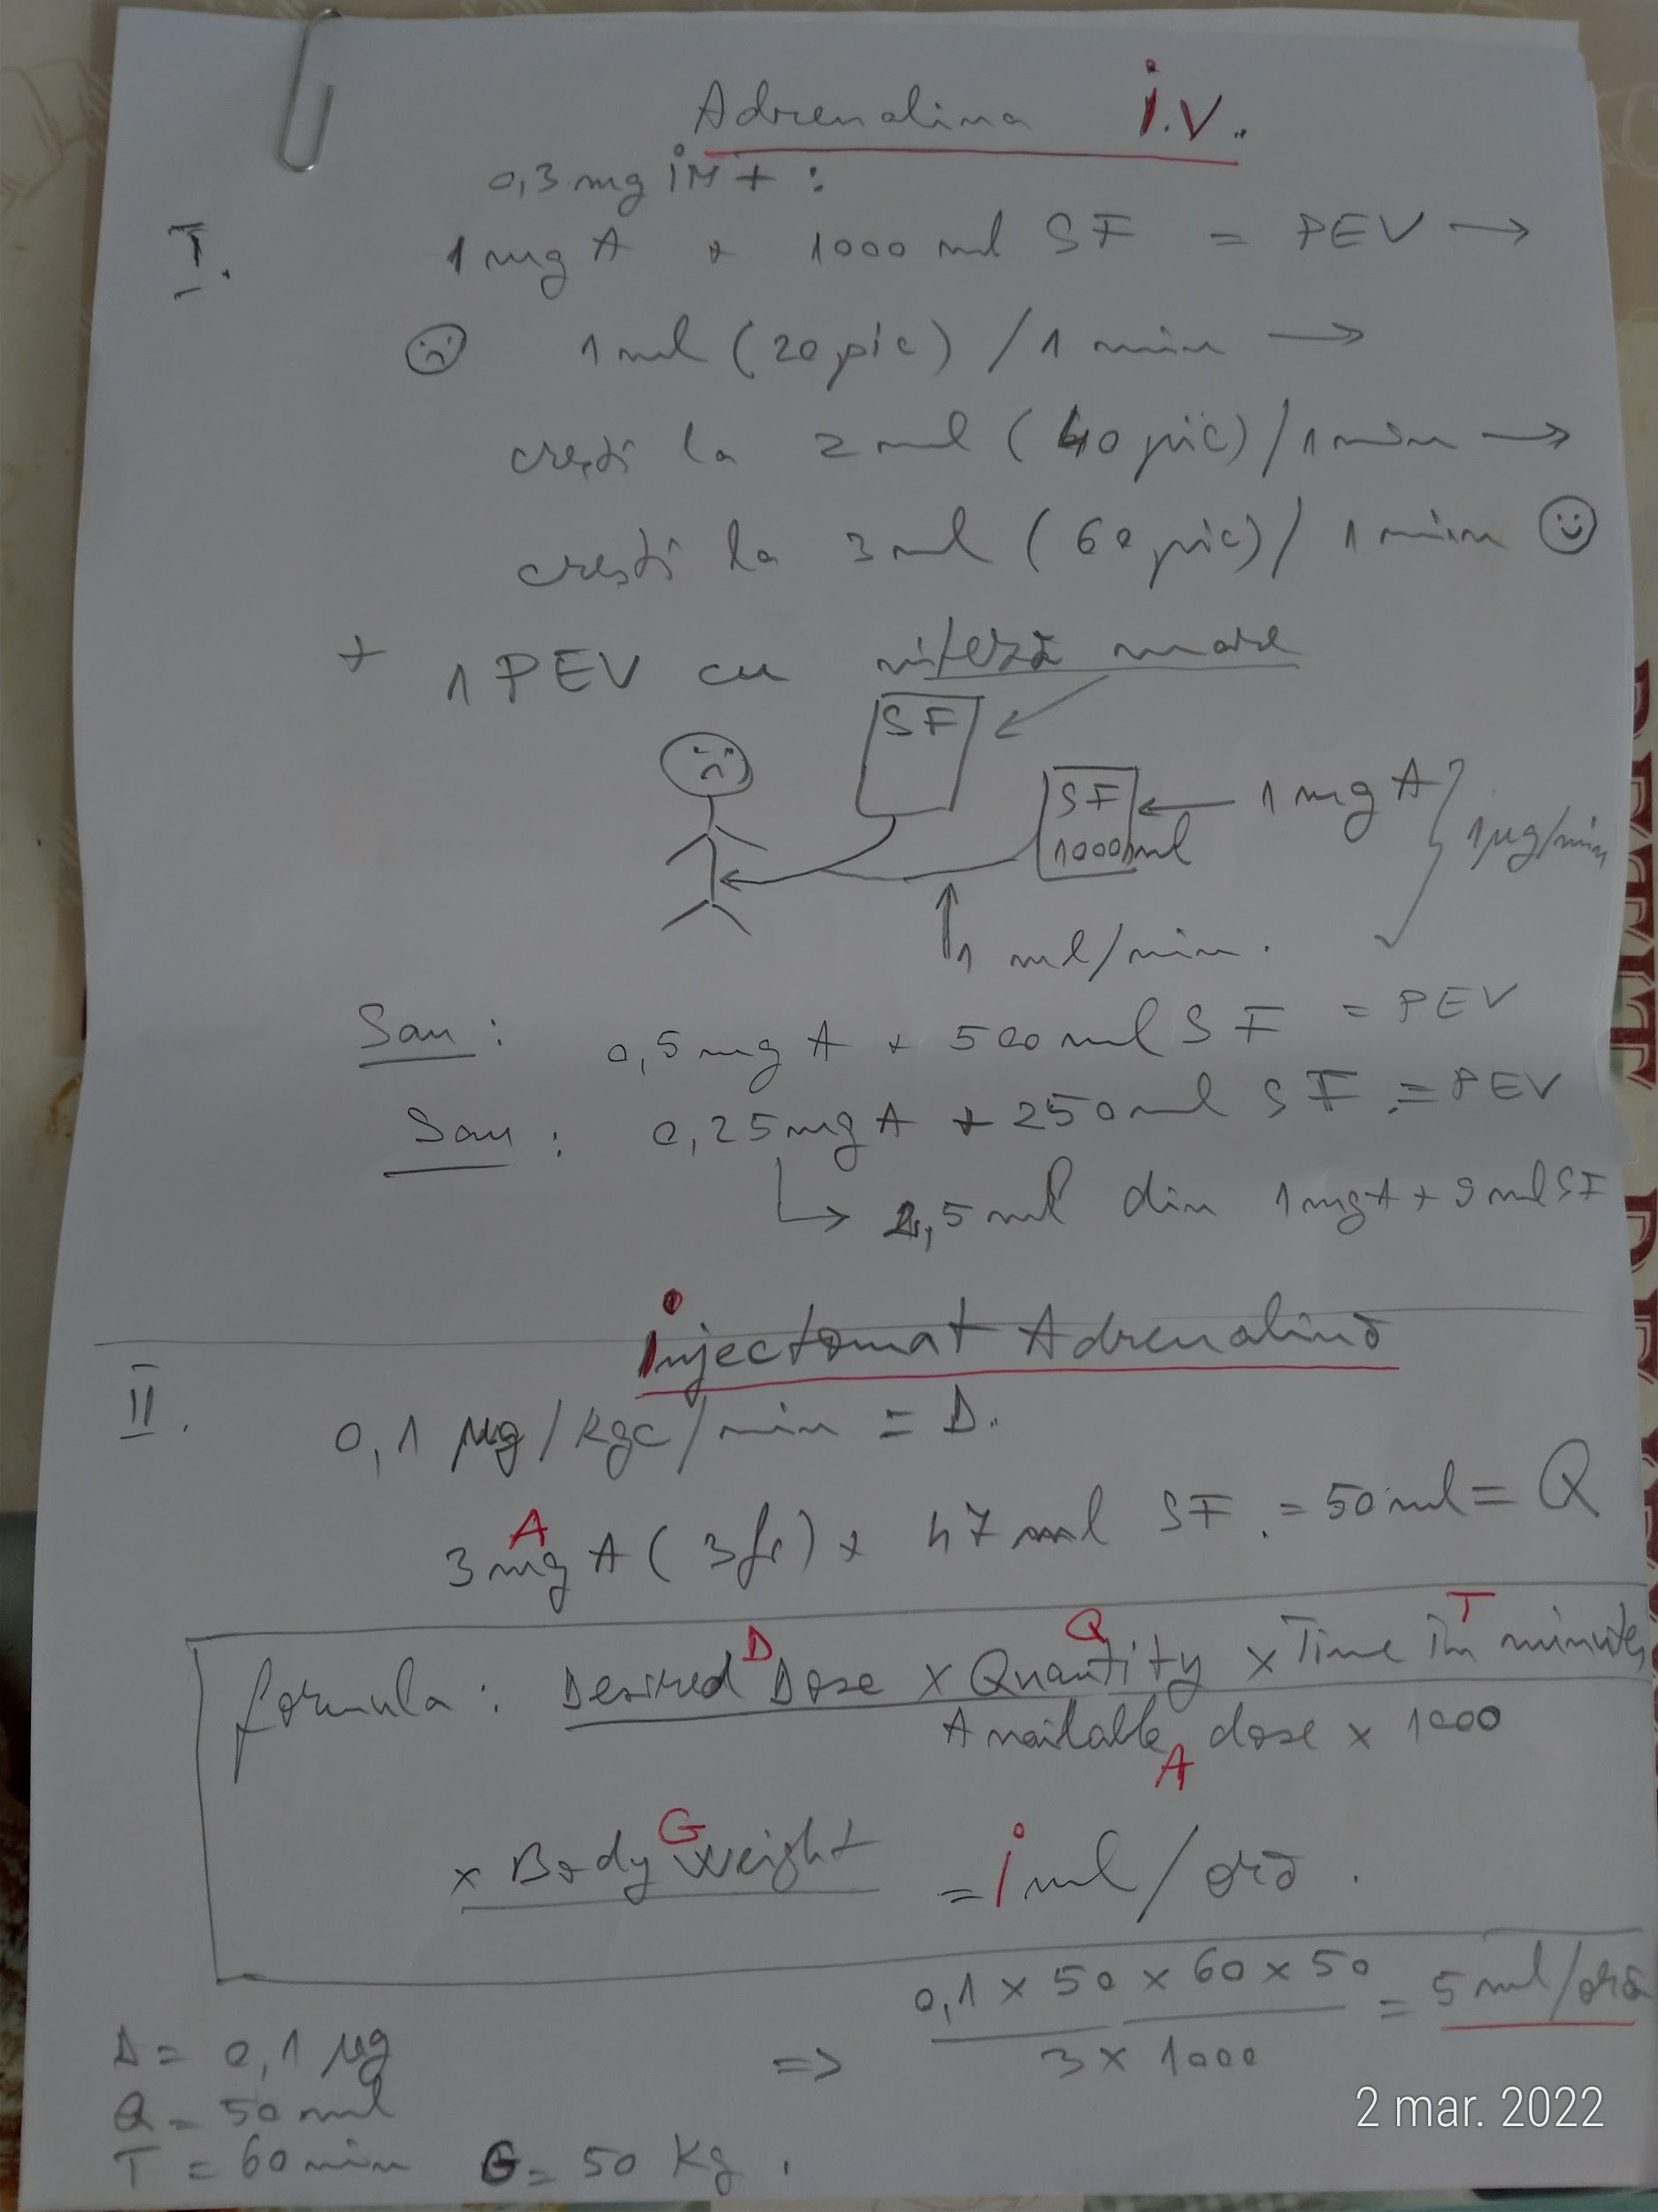 Adrenalina i.v.
0,3 mg iM + :
I. 1 mg A + 1000 ml SF = PEV →
1 ml (20 pic) / 1 min →
crești la 2 ml (40 pic) / 1 min →
crești la 3 ml (60 pic) / 1 min
+ 1 PEV cu viteză mare
SF
SF ← 1 mg A
1000 ml
1 µg/min
1 ml/min.
Sau : 0,5 mg A + 500 ml SF = PEV
Sau : 0,25 mg A + 250 ml SF = PEV
→ 2,5 ml din 1 mg A + 9 ml SF
injectomat Adrenalină
II. 0,1 µg/kgc/min = D.
A
3 mg A (3 f) + 47 ml SF = 50 ml = Q
D Q T
formula : Desired Dose x Quantity x Time in minutes
Available dose x 1000
A
G
x Body weight = i ml / oră .
0,1 x 50 x 60 x 50 = 5 ml/oră
=> 3 x 1000
D = 0,1 µg
Q = 50 ml
T = 60 min G = 50 kg .
2 mar. 2022